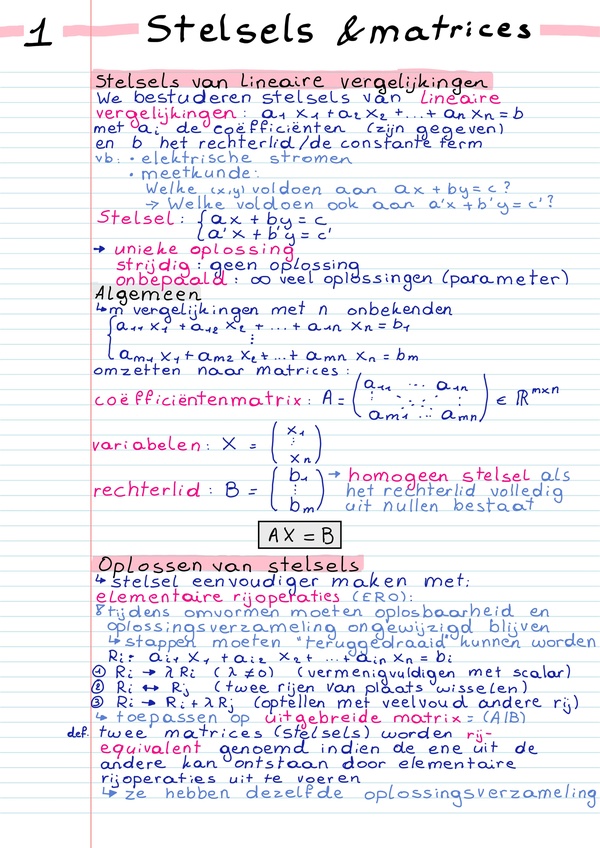 1 Stelsels & matrices
Stelsels van lineaire vergelijkingen
We bestuderen stelsels van lineaire
vergelijkingen : a₁ x₁ + a₂ x₂ + ... + aₙ xₙ = b
met aᵢ de coëfficiënten (zijn gegeven)
en b het rechterlid / de constante term
vb: • elektrische stromen
• meetkunde:
Welke (x,y) voldoen aan ax + by = c ?
→ Welke voldoen ook aan a'x + b'y = c' ?
Stelsel : { ax + by = c
a'x + b'y = c'
→ unieke oplossing
strijdig : geen oplossing
onbepaald : ∞ veel oplossingen (parameter)
Algemeen
↳ m vergelijkingen met n onbekenden
{ a₁₁ x₁ + a₁₂ x₂ + ... + a₁ₙ xₙ = b₁
⋮
aₘ₁ x₁ + aₘ₂ x₂ + ... + aₘₙ xₙ = bₘ
omzetten naar matrices :
coëfficiëntenmatrix : A = ( a₁₁ ... a₁ₙ
⋮ ⋱ ⋮
aₘ₁ ... aₘₙ ) ∈ ℝᵐˣⁿ
variabelen : X = ( x₁
⋮
xₙ )
rechterlid : B = ( b₁ → homogeen stelsel als
⋮ het rechterlid volledig
bₘ ) uit nullen bestaat
AX = B
Oplossen van stelsels
↳ stelsel eenvoudiger maken met:
elementaire rijoperaties (ERO):
tijdens omvormen moeten oplosbaarheid en
oplossingsverzameling ongewijzigd blijven
↳ stappen moeten "teruggedraaid" kunnen worden
Rᵢ = aᵢ₁ x₁ + aᵢ₂ x₂ + ... + aᵢₙ xₙ = bᵢ
① Rᵢ → λRᵢ (λ ≠ 0) (vermenigvuldigen met scalar)
② Rᵢ ↔ Rⱼ (twee rijen van plaats wisselen)
③ Rᵢ → Rᵢ + λRⱼ (optellen met veelvoud andere rij)
↳ toepassen op uitgebreide matrix = (A|B)
def. twee matrices (stelsels) worden rij-
equivalent genoemd indien de ene uit de
andere kan ontstaan door elementaire
rijoperaties uit te voeren
↳ ze hebben dezelfde oplossingsverzameling